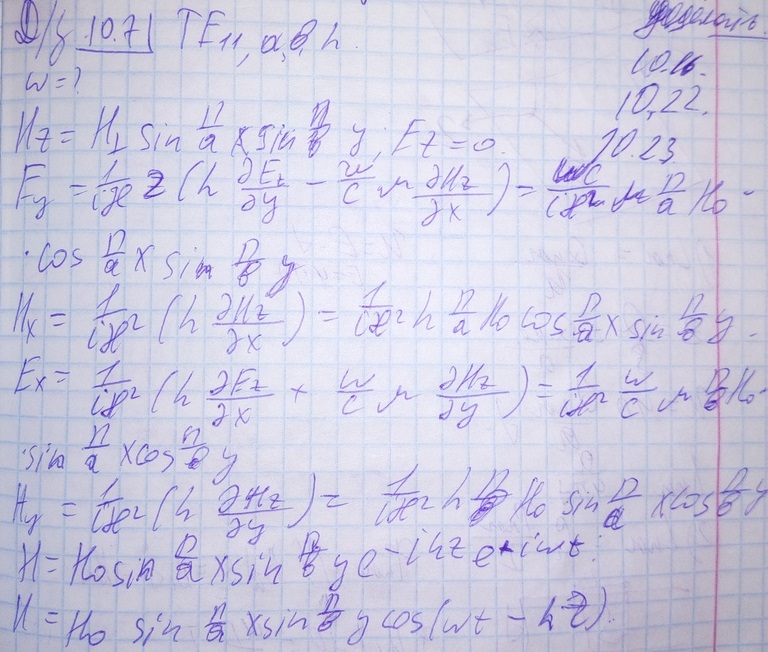 Д/з 10.7 TE₁₁, a, b, h.
ω = ?
доделать
10.16.
10.22.
10.23
Hz = H₁ sin π/a x sin π/b y; Ez = 0.
Ey = 1/iæ² (h ∂Ez/∂y − ω/c μ ∂Hz/∂x) = μ π/a H₀ ·
· cos π/a x sin π/b y
Hx = 1/iæ² (h ∂Hz/∂x) = 1/iæ² h π/a H₀ cos π/a x sin π/b y.
Ex = 1/iæ² (h ∂Ez/∂x + ω/c μ ∂Hz/∂y) = 1/iæ² ω/c μ π/b H₀ ·
· sin π/a x cos π/b y
Hy = 1/iæ² (h ∂Hz/∂y) = 1/iæ² h π/b H₀ sin π/a x cos π/b y
H = H₀ sin π/a x sin π/b y e^−ihz e^iωt.
H = H₀ sin π/a x sin π/b y cos(ωt − hz).